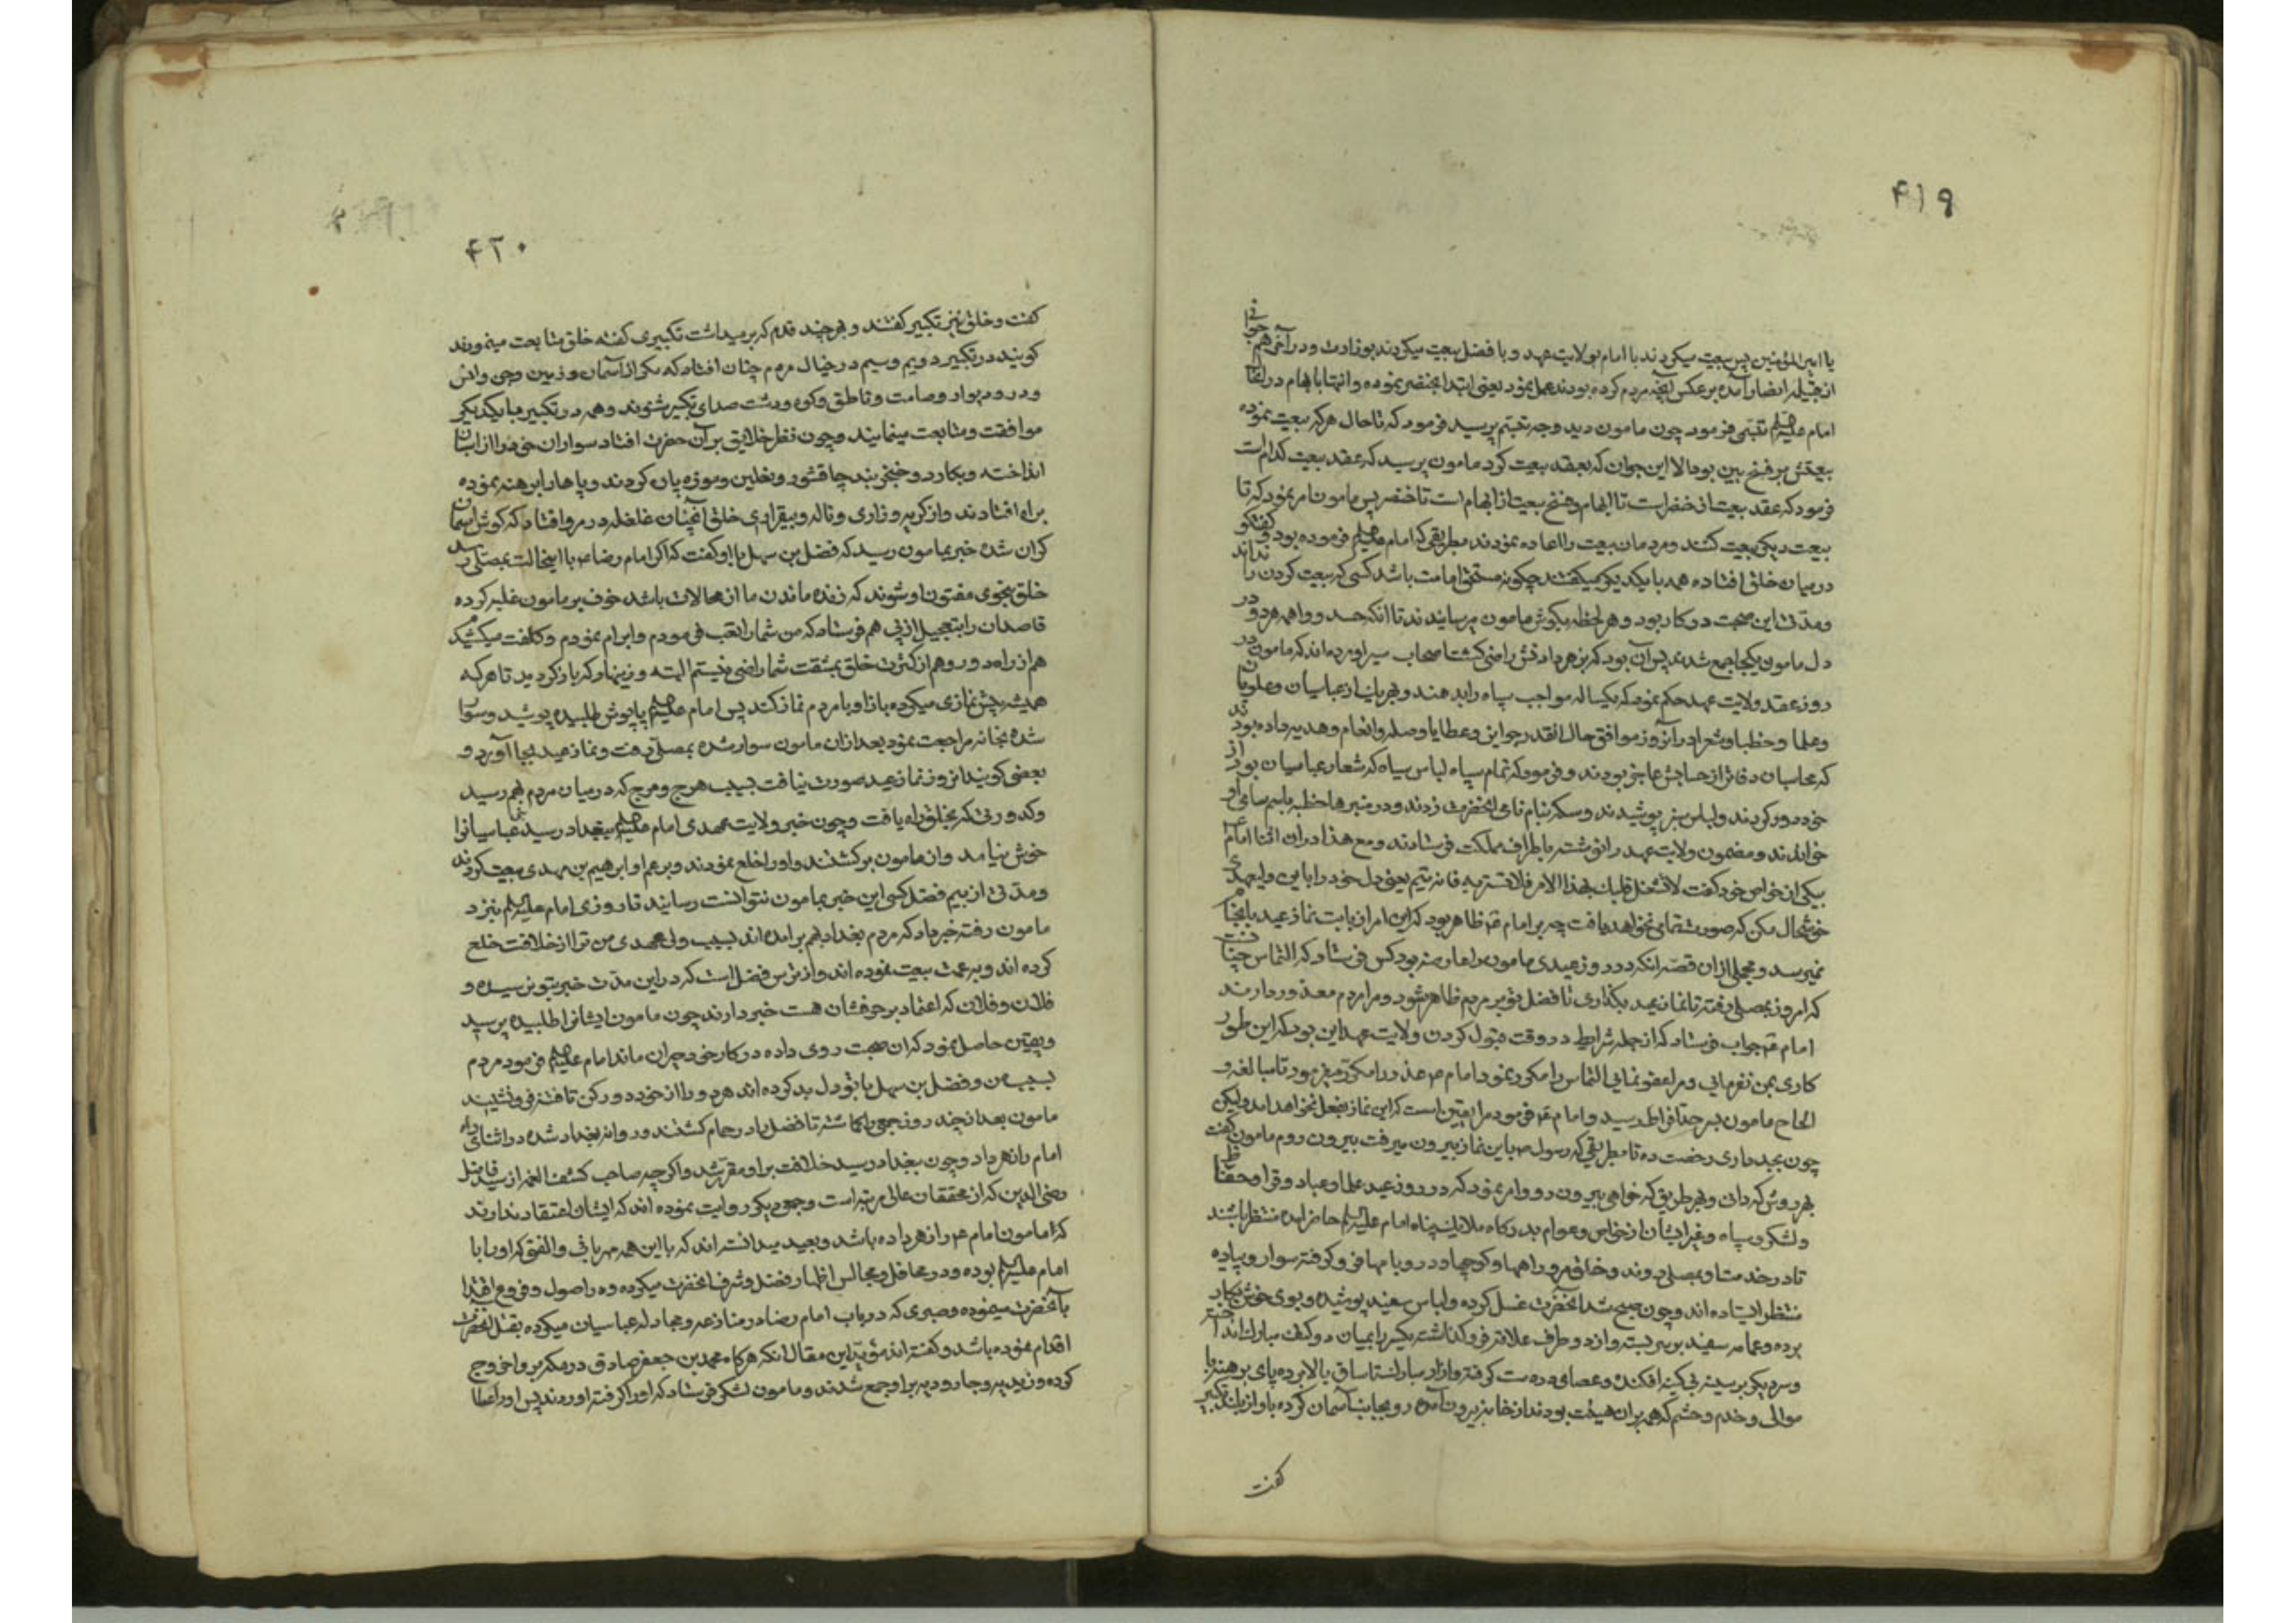 ۴۱۹
یا امیرالمؤمنین پس بیعت میکردند با امام بولایت عهد و با فضل بیعت میکردند بوزارت و در آخر همه جوانی
از قبیله انصار آمده برعکس آنچه مردم کرده بودند عمل نمود یعنی ابتدا بخنصر نموده و انتها بابهام در آنجا
امام علیه‌السلام تبسّمی فرمود چون مامون دید وجه تبسّم پرسید فرمود که تا حال هرکه بیعت نموده
بیعتش بر فسخ بود حالا این جوان که بعقد بیعت کرد مامون پرسید که عقد بیعت کدام است
فرمود که عقد بیعت از خنصر است تا ابهام و فسخ بیعت از ابهام است تا خنصر پس مامون امر نمود که تا
بیعت دیگر بیعت کنند و مردمان بیعت را اعاده نمودند بطریقی که امام علیه‌السلام فرموده بود و گفتگو
در میان خلق افتاده همه با یکدیگر میگفتند چگونه مستحق امامت باشد کسی که بیعت کردن را نداند
و مدتی این صحبت در کار بود و هر لحظه بگوش مامون میرسانیدند تا آنکه حسد و واهمه هر دو در
دل مامون یکجا جمع شده پس آن بود که بزهر دادنش راضی گشت اصحاب سیر آورده‌اند که مامون در
روز عقد ولایت عهد حکم نمود که یکساله مواجب سپاه را بدهند و بهر یک از عباسیان و علویان
و علما و خطبا و شعرا در آنروز موافق حال آنقدر جوایز و عطایا و صله و انعام و هدیه داده بودند
که محاسبان دفاتر از حسابش عاجز بودند و فرمود که تمام سپاه لباس سیاه که شعار عباسیان بود از
خود دور کردند و لباس سبز پوشیدند و سکه بنام نامی آنحضرت زدند و در منبرها خطبه باسم سامی او
خواندند و مضمون ولایت عهد را نوشته باطراف مملکت فرستادند و مع هذا در آن اثنا امام
بیکی از خواص خود گفت لا تشغل قلبک بهذا الامر فلا تستر به فانه لا یتم یعنی دل خود را باین ولیعهدی
خوشحال مکن که صورت تمامی نخواهد یافت چه بر امام ع ظاهر بود که این امر از بابت نماز عید بانجام
نمیرسد و مجملی از آن قصه آنکه در روز عیدی مامون را عارضه بود کس فرستاد که التماس چنانست
که امروز بمصلی رفته تا نماز عید بگذاری تا فضل تو بر مردم ظاهر شود و مرا مردم معذور دارند
امام ع جواب فرستاد که از جمله شرایط در وقت قبول کردن ولایت عهد این بود که این طور
کاری بمن نفرمائی و مرا عفو نمائی التماس را مکرر نمود امام ع عذر را مکرر میفرمود تا مبالغه و
الحاح مامون بسر حد افراط رسید و امام ع فرمود مرا یقین است که این نماز بفعل نخواهد آمد ولیکن
چون بجد داری رخصت ده تا بطریقی که رسول ص باین نماز بیرون میرفت بیرون روم مامون گفت
بهر روش که دانی و بهر طریق که خواهی بیرون رو و امر نمود که در روز عید علما و عباد و قرا و حفاظ
و لشکر و سپاه و غیر ایشان از خواص و عوام بدرگاه ملایک پناه امام علیه‌السلام حاضر آمده منتظر باشند
تا در خدمت او بمصلی روند و خلق مرو راهها و کوچها و در و بامها فرو گرفته سوار و پیاده
منتظر ایستاده‌اند و چون صبح شد آنحضرت غسل کرده و لباس سفید پوشیده و بوی خوش بکار
برده و عمامه سفید بر سر بسته و از دو طرف علاقه فرو گذاشته یکی را بمیان دو کتف مبارک انداخته
و سر دیگر بر سینه بی کینه افکنده و عصای در دست گرفته و ازار مبارکش تا ساق بالا برده پای برهنه با
موالی و خدم و حشم که همه بر آن هیئت بودند از خانه بیرون آمده رو بجانب آسمان کرده باواز بلند تکبیر
گفت
۴۲۰
گفت و خلق نیز تکبیر گفتند و هر چند قدم که برمیداشت تکبیری گفته خلق متابعت مینمودند
گویند در تکبیر دویم و سیم در خیال مردم چنان افتاد که مگر از آسمان و زمین و جن و انس
و در و دیوار و صامت و ناطق و کوه و دشت صدای تکبیر شنوند و همه در تکبیر با یکدیگر
موافقت و متابعت مینمایند و چون نظر خلایق بر آن حضرت افتاد سواران خود را از اسبان
انداخته و بکارد و خنجر بند چاقشور و نعلین و موزه پاره کردند و پاها را برهنه نموده
براه افتادند و از گریه و زاری و ناله و بیقراری خلق آنچنان غلغله در مرو افتاد که گوش آسمان
گران شده خبر بمامون رسید که فضل بن سهل باو گفت که اگر امام رضا ع با اینحالت بمصلی رسد
خلق بنحوی مفتون او شوند که زنده ماندن ما از محالات باشد خوف بر مامون غلبه کرده
قاصدان را بتعجیل از پی هم فرستاد که من شما را تعب فرمودم و ابرام نمودم و کلفت میکشید
هم از راه دور و هم از کثرت خلق بمشقت شما راضی نیستم البته و زینهار که باز گردید تا هر که
همیشه پیش نمازی میکرده باز او با مردم نماز کند پس امام علیه‌السلام پاپوش طلبیده پوشید و سوار
شده بخانه مراجعت نمود بعد از آن مامون سوار شده بمصلی رفت و نماز عید بجا آورد و
بعضی گویند آنروز نماز عید صورت نیافت بسبب هرج و مرج که در میان مردم بهم رسید
و کدورتی که بخلق راه یافت و چون خبر ولایت عهدی امام علیه‌السلام ببغداد رسید عباسیانرا
خوش نیامد و از مامون برگشتند و او را خلع نمودند و بر عم او ابرهیم بن مهدی بیعت کردند
و مدتی از بیم فضل کسی این خبر بمامون نتوانست رسانید تا روزی امام علیه‌السلام نزد
مامون رفته خبر داد که مردم بغداد بهم برآمده‌اند بسبب ولیعهدی من ترا از خلافت خلع
کرده‌اند و به عمت بیعت نموده‌اند و از ترس فضل است که در این مدت خبر بتو نرسیده و
فلان و فلان که اعتماد بر حرفشان هست خبر دارند چون مامون ایشانرا طلبیده پرسید
و یقین حاصل نمود که آن صحبت روی داده در کار خود حیران ماند امام علیه‌السلام فرمود مردم
بسبب من و فضل بن سهل با تو دل بد کرده‌اند هر دو را از خود دور کن تا فتنه فرو نشیند
مامون بعد از چند روز جمعی را گماشته تا فضل را در حمام کشتند و روانه بغداد شده در اثنای راه
امام را زهر داد و چون بغداد رسید خلافت بر او مقرر شد و اگرچه صاحب کشف الغمه از سید فاضل
رضی الدین که از محققان عالی مرتبه است و جمع دیگر روایت نموده‌اند که ایشان اعتقاد ندارند
که مامون امام ع را زهر داده باشد و بعید میدانسته‌اند که با این همه مهربانی و الفتی که او را با
امام علیه‌السلام بوده و در محافل و مجالس اظهار فضل و شرف آنحضرت میکرده و در اصول و فروع اقتدا
بآنحضرت مینموده و صبری که در باب امام رضا در منازعه و مجادله عباسیان میکرده بقتل آنحضرت
اقدام نموده باشد و گفته‌اند مؤید این مقال آنکه هرگاه محمد بن جعفر صادق در مکه بر او خروج
کرده و زیدیه و جارودیه بر او جمع شدند و مامون لشکر فرستاد که او را گرفته آوردند پس او را عطا